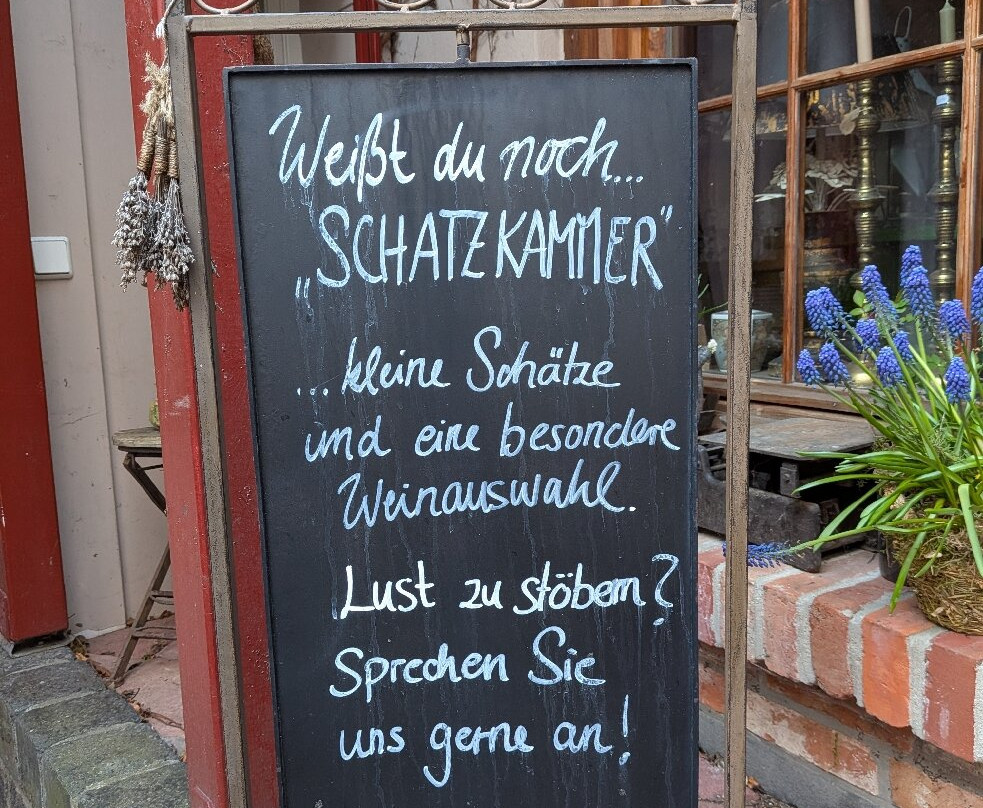 Weißt du noch...
„SCHATZKAMMER"
...kleine Schätze
und eine besondere
Weinauswahl.
Lust zu stöbern?
Sprechen Sie
uns gerne an!